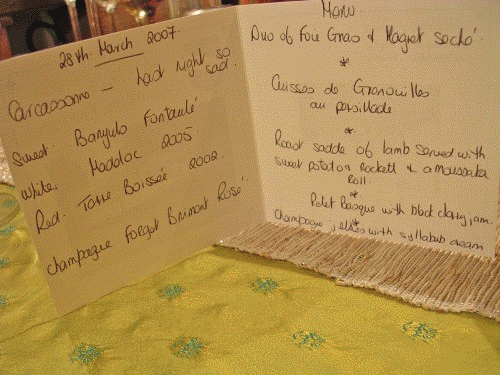 28th March 2007.
Carcassonne - Last night so sad.
Sweet Banyuls Fontaulé
White. Madeloc 2005.
Red. Terre Boissée 2002.
Champagne Forget Brimont Rosé.
Menu
Duo of Foie Gras & Magret seché.
*
Cuisses de Grenouilles
au persillade
*
Roast saddle of lamb served with
sweet potato & Rockett & a moussaka
Roll.
*
Petit Basque with black cherry jam.
*
Champagne jellies with syllabub cream